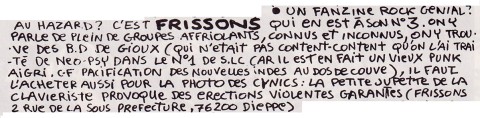 ● UN FANZINE ROCK GENIAL?
AU HAZARD? C'EST FRISSONS QUI EN EST À SON N°3. ON Y
PARLE DE PLEIN DE GROUPES AFFRIOLANTS, CONNUS ET INCONNUS, ON Y TROU-
-VE DES B.D DE GIOUX (QUI N'ETAIT PAS CONTENT-CONTENT QU'ON L'AI TRAI
-TÉ DE NEO-PSY DANS LE N°1 DE S.LC (AR IL EST EN FAIT UN VIEUX PUNK
AIGRI. CF PACIFICATION DES NOUVELLES INDES AU DOS DE COUVE), IL FAUT
L'ACHETER AUSSI POUR LA PHOTO DES CYNICS: LA PETITE JUPETTE DE LA
CLAVIERISTE PROVOQUE DES ERECTIONS VIOLENTES GARANTES (FRISSONS
2 RUE DE LA SOUS PREFECTURE, 76200 DIEPPE)